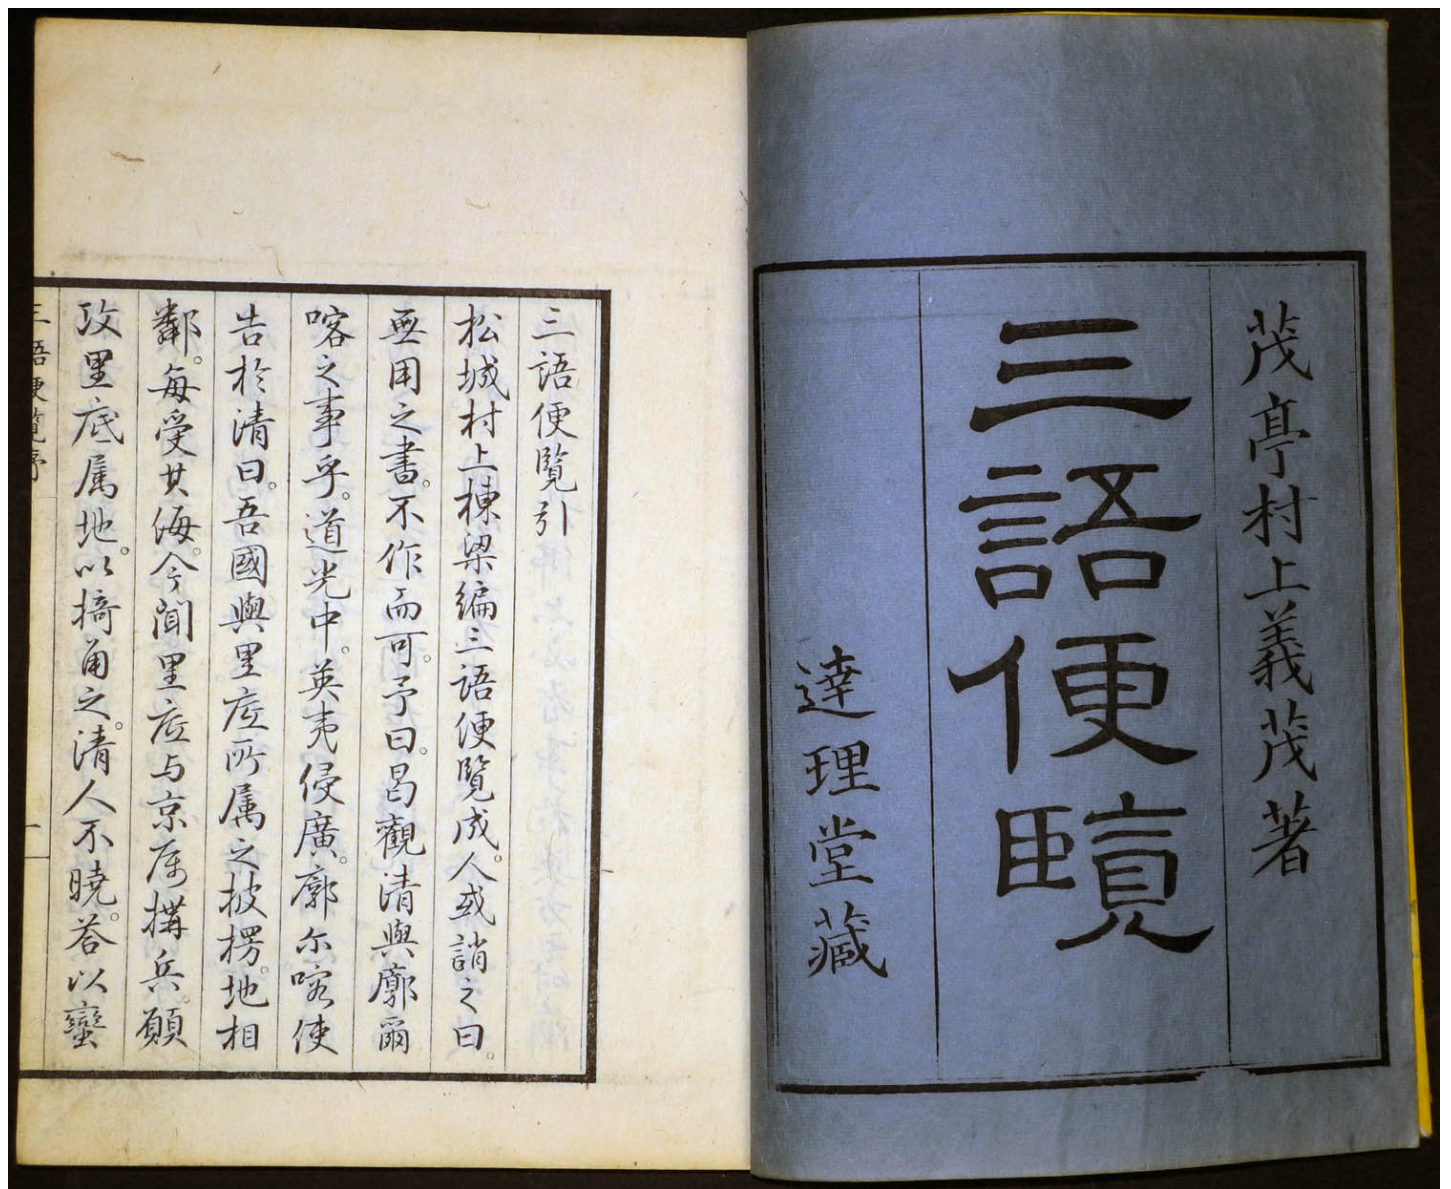 茂亭村上義茂著
三語便覽
達理堂藏
三語便覽引
松城村上棟梁編三語便覽成。人或誚之曰。
無用之書。不作而可。予曰。曷觀清與廓爾
喀之事乎。道光中。英夷侵廣。廓尔喀使
告於清曰。吾國與里底所属之披楞。地相
鄰。每受其侮。今聞里底与京属搆兵。願
攻里底属地。以掎角之。清人不曉。答以蠻
三語便覽序
一